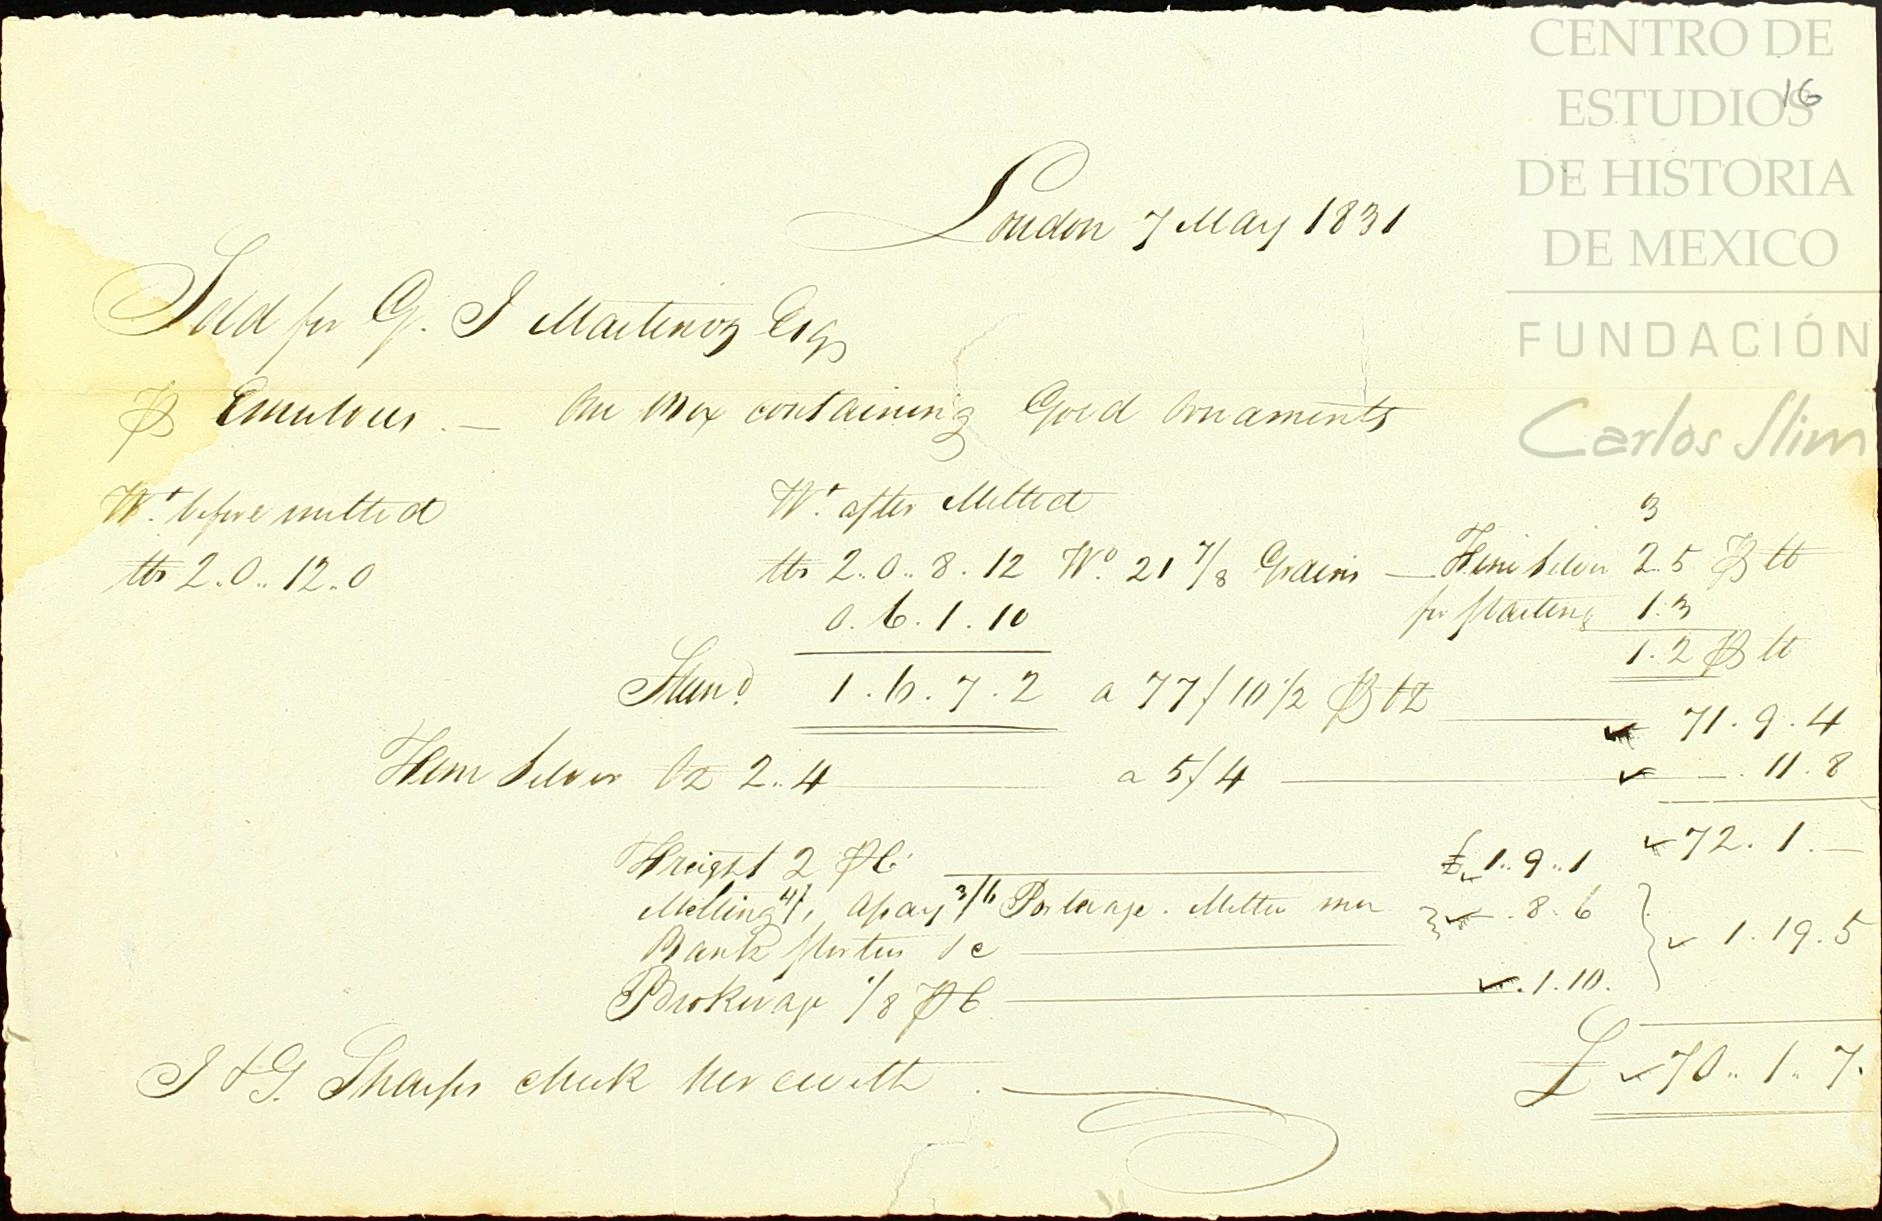 CENTRO DE
ESTUDIOS
DE HISTORIA
DE MEXICO
FUNDACIÓN
Carlos Slim
16
London 7 May 1831
Sold for G. J Martinez Esqr
℔ Emulous. — One Box containing Gold Ornaments
Wt. before melted Wt. after Melted 3
lbs 2.. 0.. 12.. 0 lbs 2.. 0.. 8. 12 Wo. 21 7/8 Grains — Fine Silver 2.. 5 ℔ lb
0. 6. 1. 10 for parting 1.. 3
1. 2 ℔ lb
Stand. 1. 6. 7. 2 a 77/10 1/2 ℔ oz 71. 9. 4
Fine Silver Oz 2.. 4 a 5/4 —. 11. 8
72. 1. —
Freight 2 ℔ C. £ 1.. 9.. 1
Melting 4/, Assay 3/6 Porterage. Melter and —. 8. 6
Bank Porters &c 1. 19. 5
Brokerage 1/8 ℔ C . 1. 10.
J & G. Sharps check herewith. £ 70.. 1.. 7.